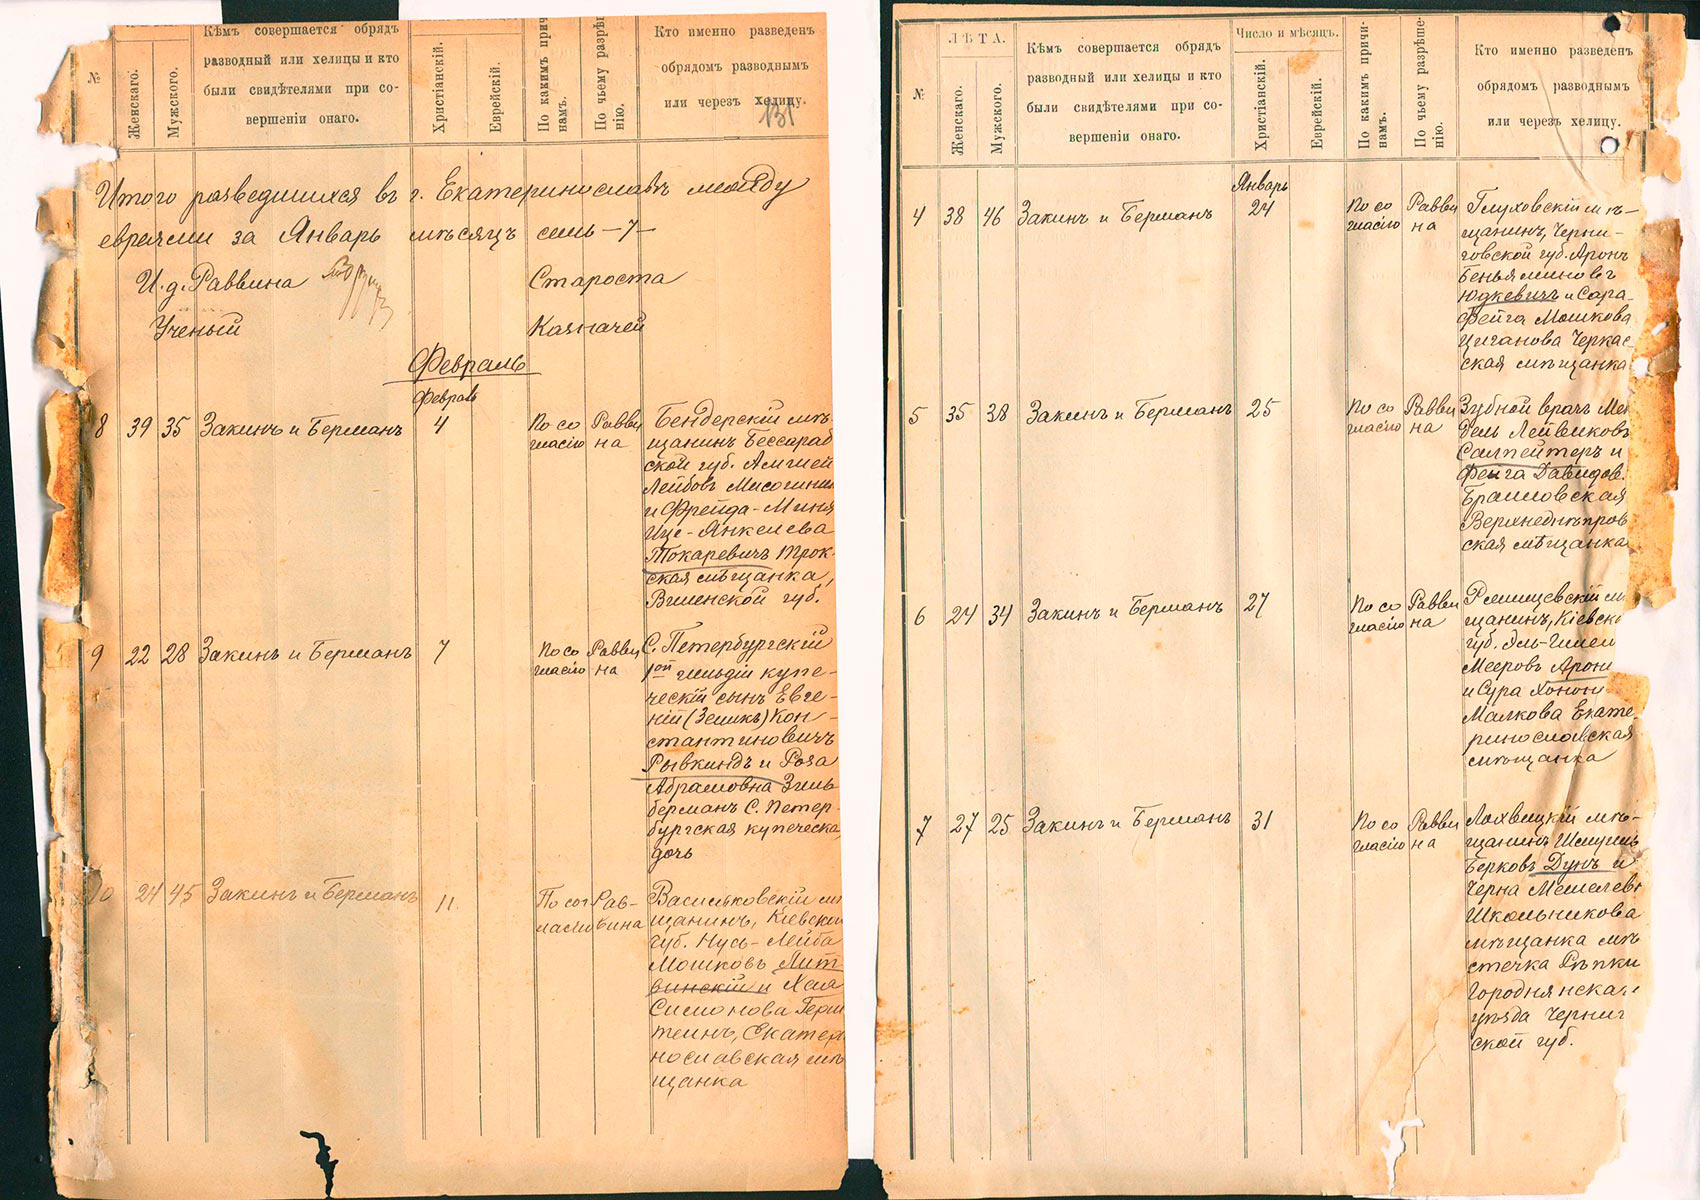 №
Женскаго.
Мужского.
Кѣмъ совершается обрядъ
разводный или хелицы и кто
были свидѣтелями при со-
вершеніи онаго.
Христіанскій.
Еврейскій.
По какимъ причи
намъ.
По чьему разрѣш
нію.
Кто именно разведенъ
обрядомъ разводнымъ
или черезъ хелицу.
131
Итого разведшихся въ г. Екатеринославѣ между
евреями за Январь мѣсяцъ семь -7-
И. д. Раввина Староста
Ученый Казначей
Февраль
Февраль
8 39 35 Закинъ и Берманъ 4 По со Равви
гласію на
Бендерскій мѣ-
щанинъ Бессараб
ской губ.
Лейбовъ
и Фрейда-Миня
Ице-Янкелева
Токаревичъ Трок-
ская мѣщанка,
Виленской губ.
9 22 28 Закинъ и Берманъ 7 По со Равви
гласію на
С. Петербургскій
1ой гильдіи купе-
ческій сынъ Евге-
ній (Зеликъ) Кон-
стантиновичъ
Рывкиндъ и Роза
Абрамовна Зиль
берманъ С. Петер-
бургская купеческа
дочь
10 24 45 Закинъ и Берманъ 11. По сог Рав-
ласію вина
Васильковскій мѣ
щанинъ, Кіевской
губ. Нусь-Лейба
Мошковъ Лит-
винскій и Хая
Симонова Герш
теинъ, Екатери
нославская мѣ
щанка
№
ЛѢТА.
Женскаго.
Мужского.
Кѣмъ совершается обрядъ
разводный или хелицы и кто
были свидѣтелями при со-
вершеніи онаго.
Число и мѣсяцъ.
Христіанскій.
Еврейскій.
По какимъ причи-
намъ.
По чьему разрѣше-
нію.
Кто именно разведенъ
обрядомъ разводнымъ
или черезъ хелицу.
Январь
4 38 46 Закинъ и Берманъ 24 По со Равви
гласію на
Глуховскій мѣ-
щанинъ, Черни-
говской губ. Аронъ
Беньяминовъ
Юдкевичъ и Сара-
Фейга Мошкова
Циганова Черкас
ская мѣщанка
5 35 38 Закинъ и Берманъ 25 По со Равви
гласію на
Зубной врачъ Мен
дель Лейвиковъ
Салпейтеръ и
Фейга Давидов.
Браиловская
Верхнеднѣпров
ская мѣщанка
6 24 34 Закинъ и Берманъ 27 По со Равви
гласію на
мѣ
щанинъ, Кіевско
губ.
Мееровъ Арон
и Сура Хонон
Малкова Екате-
ринославская
мѣщанка
7 27 25 Закинъ и Берманъ 31 По со Равви
гласію на
Лохвицкій мѣ-
щанинъ Шмуиль
Берковъ Дунъ и
Черна Мешелевн
Школьникова
мѣщанка мѣ
стечка Рѣпки
Городнянскаг
уѣзда Черниг
ской губ.